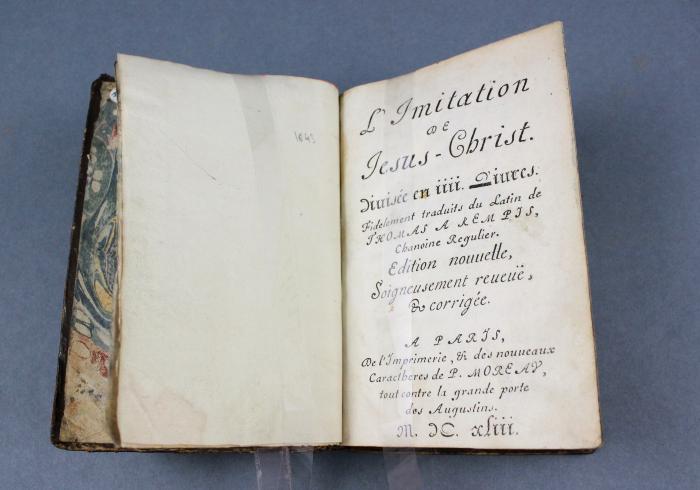 1643
L'Imitation
DE
Jesus-Christ.
Diuisée en iiii. Liures.
Fidelement traduits du Latin de
THOMAS A KEMPIS,
Chanoine Regulier.
Edition nouuelle,
Soigneusement reueuë,
& corrigée.
A PARIS,
De l'Imprimerie, & des nouueaux
Caracteres de P. MOREAV,
tout contre la grande porte
des Augustins.
M. DC. xliii.